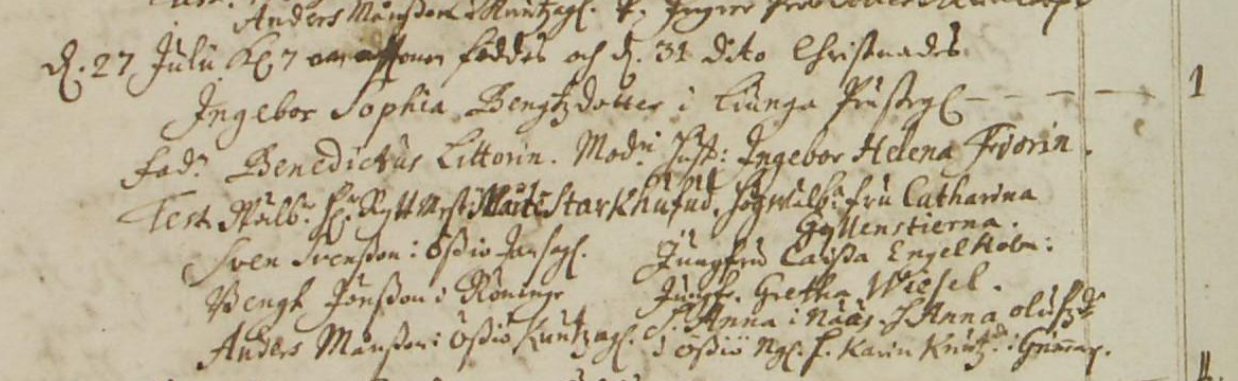 Anders Månsson i Kuutzagl. h. Ingrer
d. 27 Julii Kl 7 om afftonen föddes och d. 31 dito Christnades
Ingebor Sophia Bengtzdotter i Liunga Prustgl - - - - 1
Fad: Benedictus Littorin. Mod: Hust: Ingebor Helena Fiorin.
Test. Wälb: H: Ryttmest: Starkhufud. Högwälb: fru Catharina
Gyllenstierna.
Sven Svensson i Ossiö Jansgl. Jungfru Caissa Engelholm:
Bengt Jonsson i Röninge Jungf. Gretha Wiesel.
Anders Månsson i Össiö Kuutzagl. H. Anna i Nääs. H Anna olufzd:
i össiö Ngl. h. Karin Knutzd: i